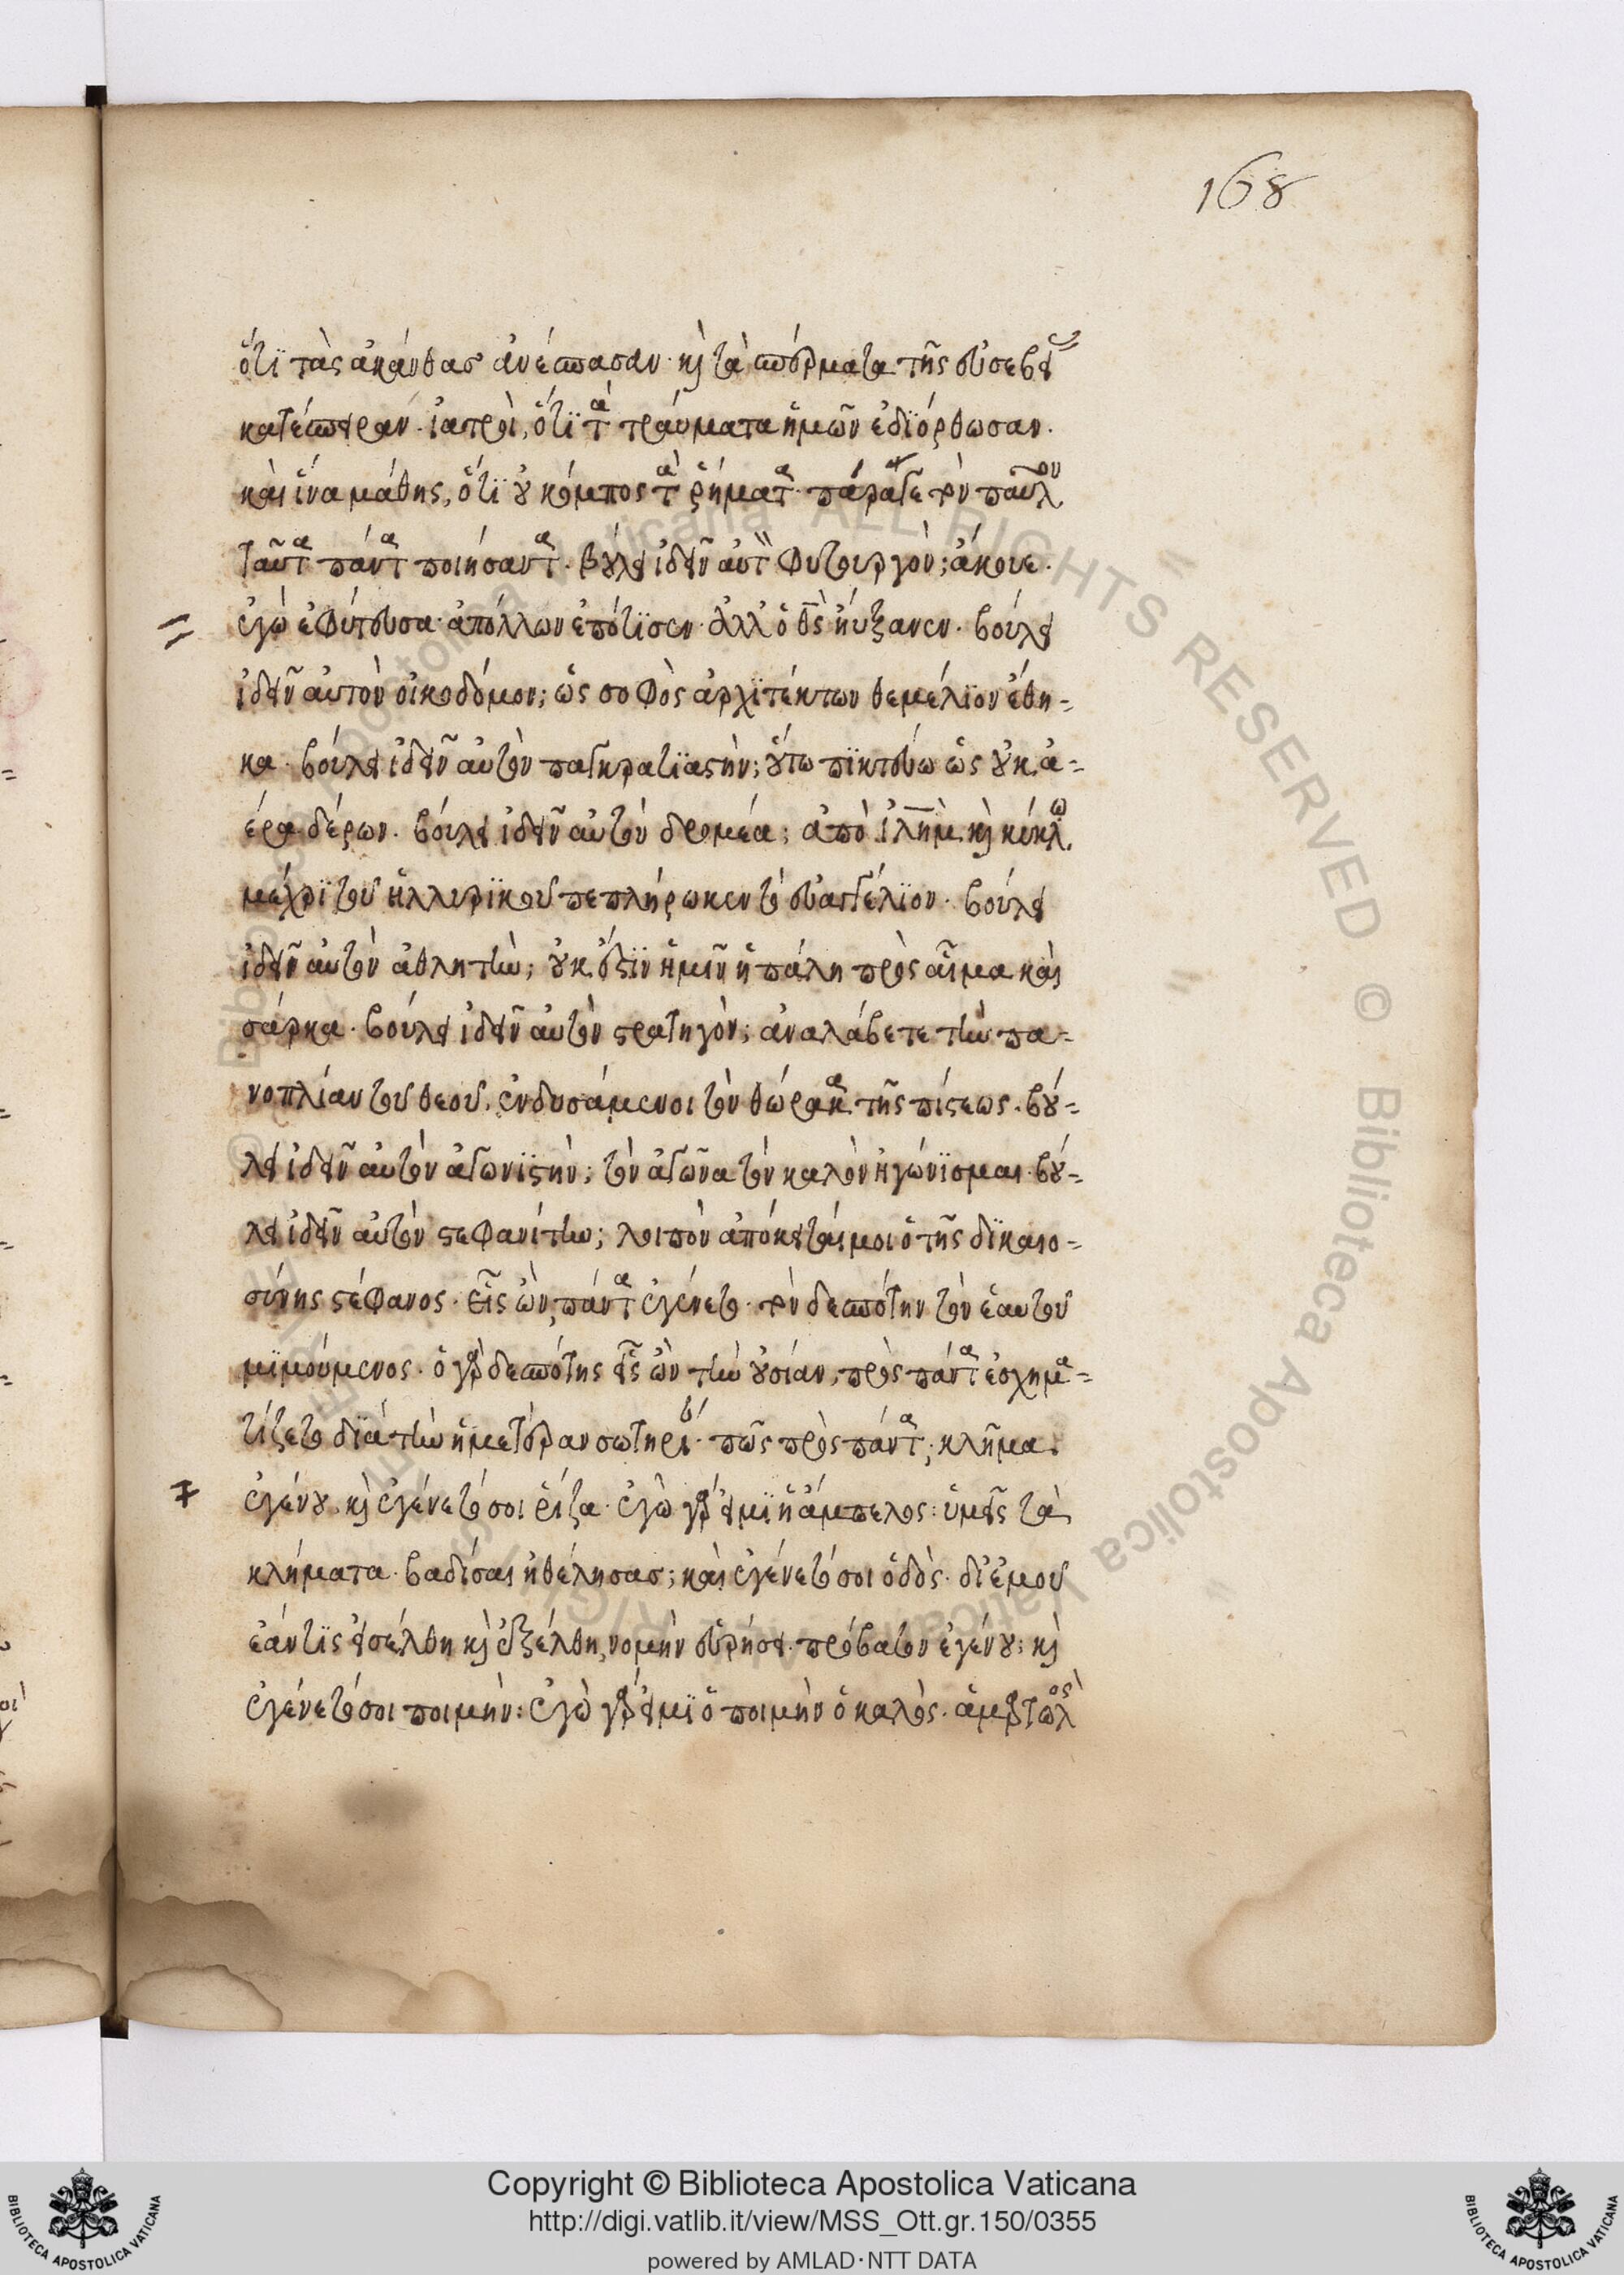 168
ὅτι τὰς ἀκάνθας ἀνέσπασαν· κὶ τὰ σπέρματα τῆς εὐσεβεί
κατέσπειραν· ἰατροὶ, ὅτι τὰ τραύματα ἡμῶν ἐδιόρθωσαν·
καὶ ἵνα μάθης, ὅτι οὐ κόμπος τὰ ῥήματα· παράγε τὸν παῦλον
ταῦτα πάντα ποιήσαντα· βούλει ἰδεῖν αὐτὸν φυτουργόν; ἄκουε·
ἐγὼ ἐφύτευσα· ἀπόλλων ἐπότισεν· ἀλλ' ὁ θς ηὔξανεν· βούλει
ἰδεῖν αὐτὸν οἰκοδόμον; ὡς σοφὸς ἀρχιτέκτων θεμέλιον ἔθη-
κα· βούλει ἰδεῖν αὐτὸν παγκρατιαστήν; οὕτω πικτεύω ὡς οὐκ ἀ-
έρα δέρων· βούλει ἰδεῖν αὐτὸν δρομέα; ἀπὸ ἱλημ κὶ κύκλω
μέχρι τοῦ ἡλλυρικοῦ πεπλήρωκεν τὸ εὐαγγέλιον· βούλει
ἰδεῖν αὐτὸν ἀθλητήν; οὐκ ἔστιν ἡμῖν ἡ πάλη πρὸς αἷμα καὶ
σάρκα· βούλει ἰδεῖν αὐτὸν στρατηγόν; ἀναλάβετε τὴν πα-
νοπλίαν τοῦ θεοῦ, ἐνδυσάμενοι τὸν θώρακα τῆς πίστεως· βού-
λει ἰδεῖν αὐτὸν ἀγωνιστήν; τὸν ἀγῶνα τὸν καλὸν ἠγώνισμαι· βού-
λει ἰδεῖν αὐτὸν στεφανίτην; λοιπὸν ἀπόκειταί μοι ὁ τῆς δικαιο-
σύνης στέφανος· εἷς ὢν, πάντα ἐγένετο· τὸν δεσπότην τὸν ἑαυτοῦ
μιμούμενος· ὁ γὰρ δεσπότης εἷς ὢν τὴν οὐσίαν, πρὸς πάντα ἐσχημα-
τίζετο διὰ τὴν ἡμετέραν σωτηρί· πῶς πρὸς πάντα; κλῆμα
ἐγένου, κὶ ἐγένετό σοι ῥίζα· ἐγὼ γάρ εἰμι ἡ ἄμπελος: ὑμεῖς τὰ
κλήματα· βαδίσαι ἠθέλησας; καὶ ἐγένετό σοι ὁδὸς· δι' ἐμοῦ
ἐάν τις εἰσέλθη κὶ ἐξέλθη, νομὴν εὑρήσει· πρόβατον ἐγένου: κὶ
ἐγένετό σοι ποιμήν: ἐγὼ γάρ εἰμι ὁ ποιμὴν ὁ καλὸς· ἁμαρτωλὸς
Copyright © Biblioteca Apostolica Vaticana
http://digi.vatlib.it/view/MSS_Ott.gr.150/0355
powered by AMLAD·NTT DATA